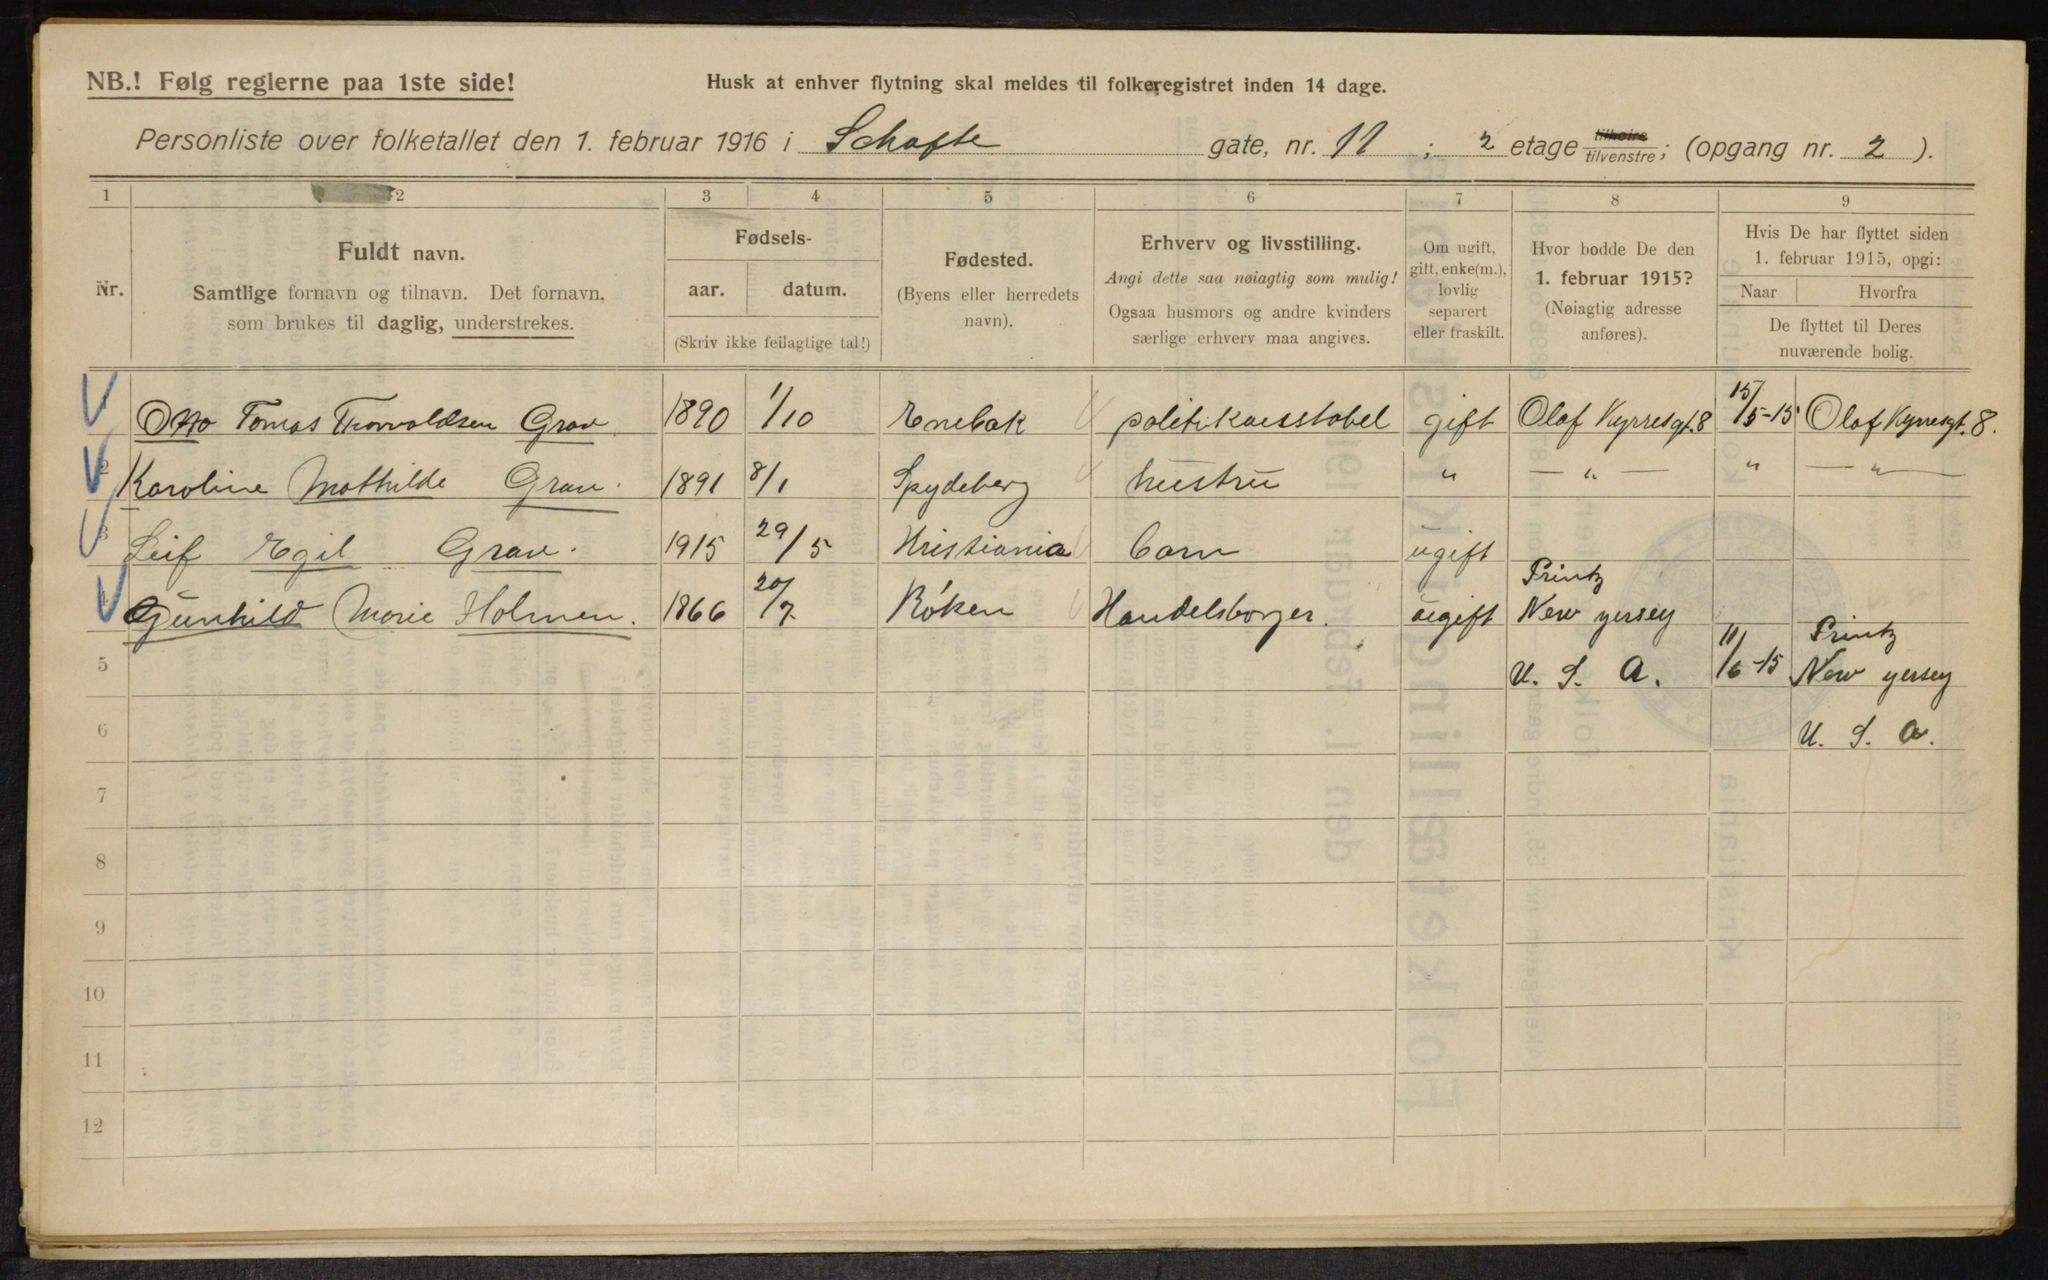 NB.! Følg reglerne paa 1ste side!
Husk at enhver flytning skal meldes til folkeregistret inden 14 dage.
Personliste over folketallet den 1. februar 1916 i Schøfte gate, nr. 11 ; 2 etage tilhøire tilvenstre; (opgang nr. 2 ).
1 2 3 4 5 6 7 8 9
Nr.
Fuldt navn.
Samtlige fornavn og tilnavn. Det fornavn,
som brukes til daglig, understrekes.
Fødsels-
aar. datum.
(Skriv ikke feilagtige tal!)
Fødested.
(Byens eller herredets
navn).
Erhverv og livsstilling.
Angi dette saa nøiagtig som mulig!
Ogsaa husmors og andre kvinders
særlige erhverv maa angives.
Om ugift,
gift, enke(m.),
lovlig
separert
eller fraskilt.
Hvor bodde De den
1. februar 1915?
(Nøiagtig adresse
anføres).
Hvis De har flyttet siden
1. februar 1915, opgi:
Naar Hvorfra
De flyttet til Deres
nuværende bolig.
Otto Tomas Thorvaldsen Grav 1890 1/10 Enebak politikonstabel gift Olaf Kyrresgt. 8 15/5-15 Olaf Kyrresgt. 8.
2 Karoline Mathilde Grav. 1891 8/1 Spydeberg hustru " — " — " — " —
3 Leif Egil Grav. 1915 29/5 Kristiania barn ugift
4 Gunhild Marie Holmen. 1866 20/7 Røken Handelsborger. ugift Printz
New yersey
U. S. A. 11/6-15 Printz
New yersey
U. S. A.
5
6
7
8
9
10
11
12